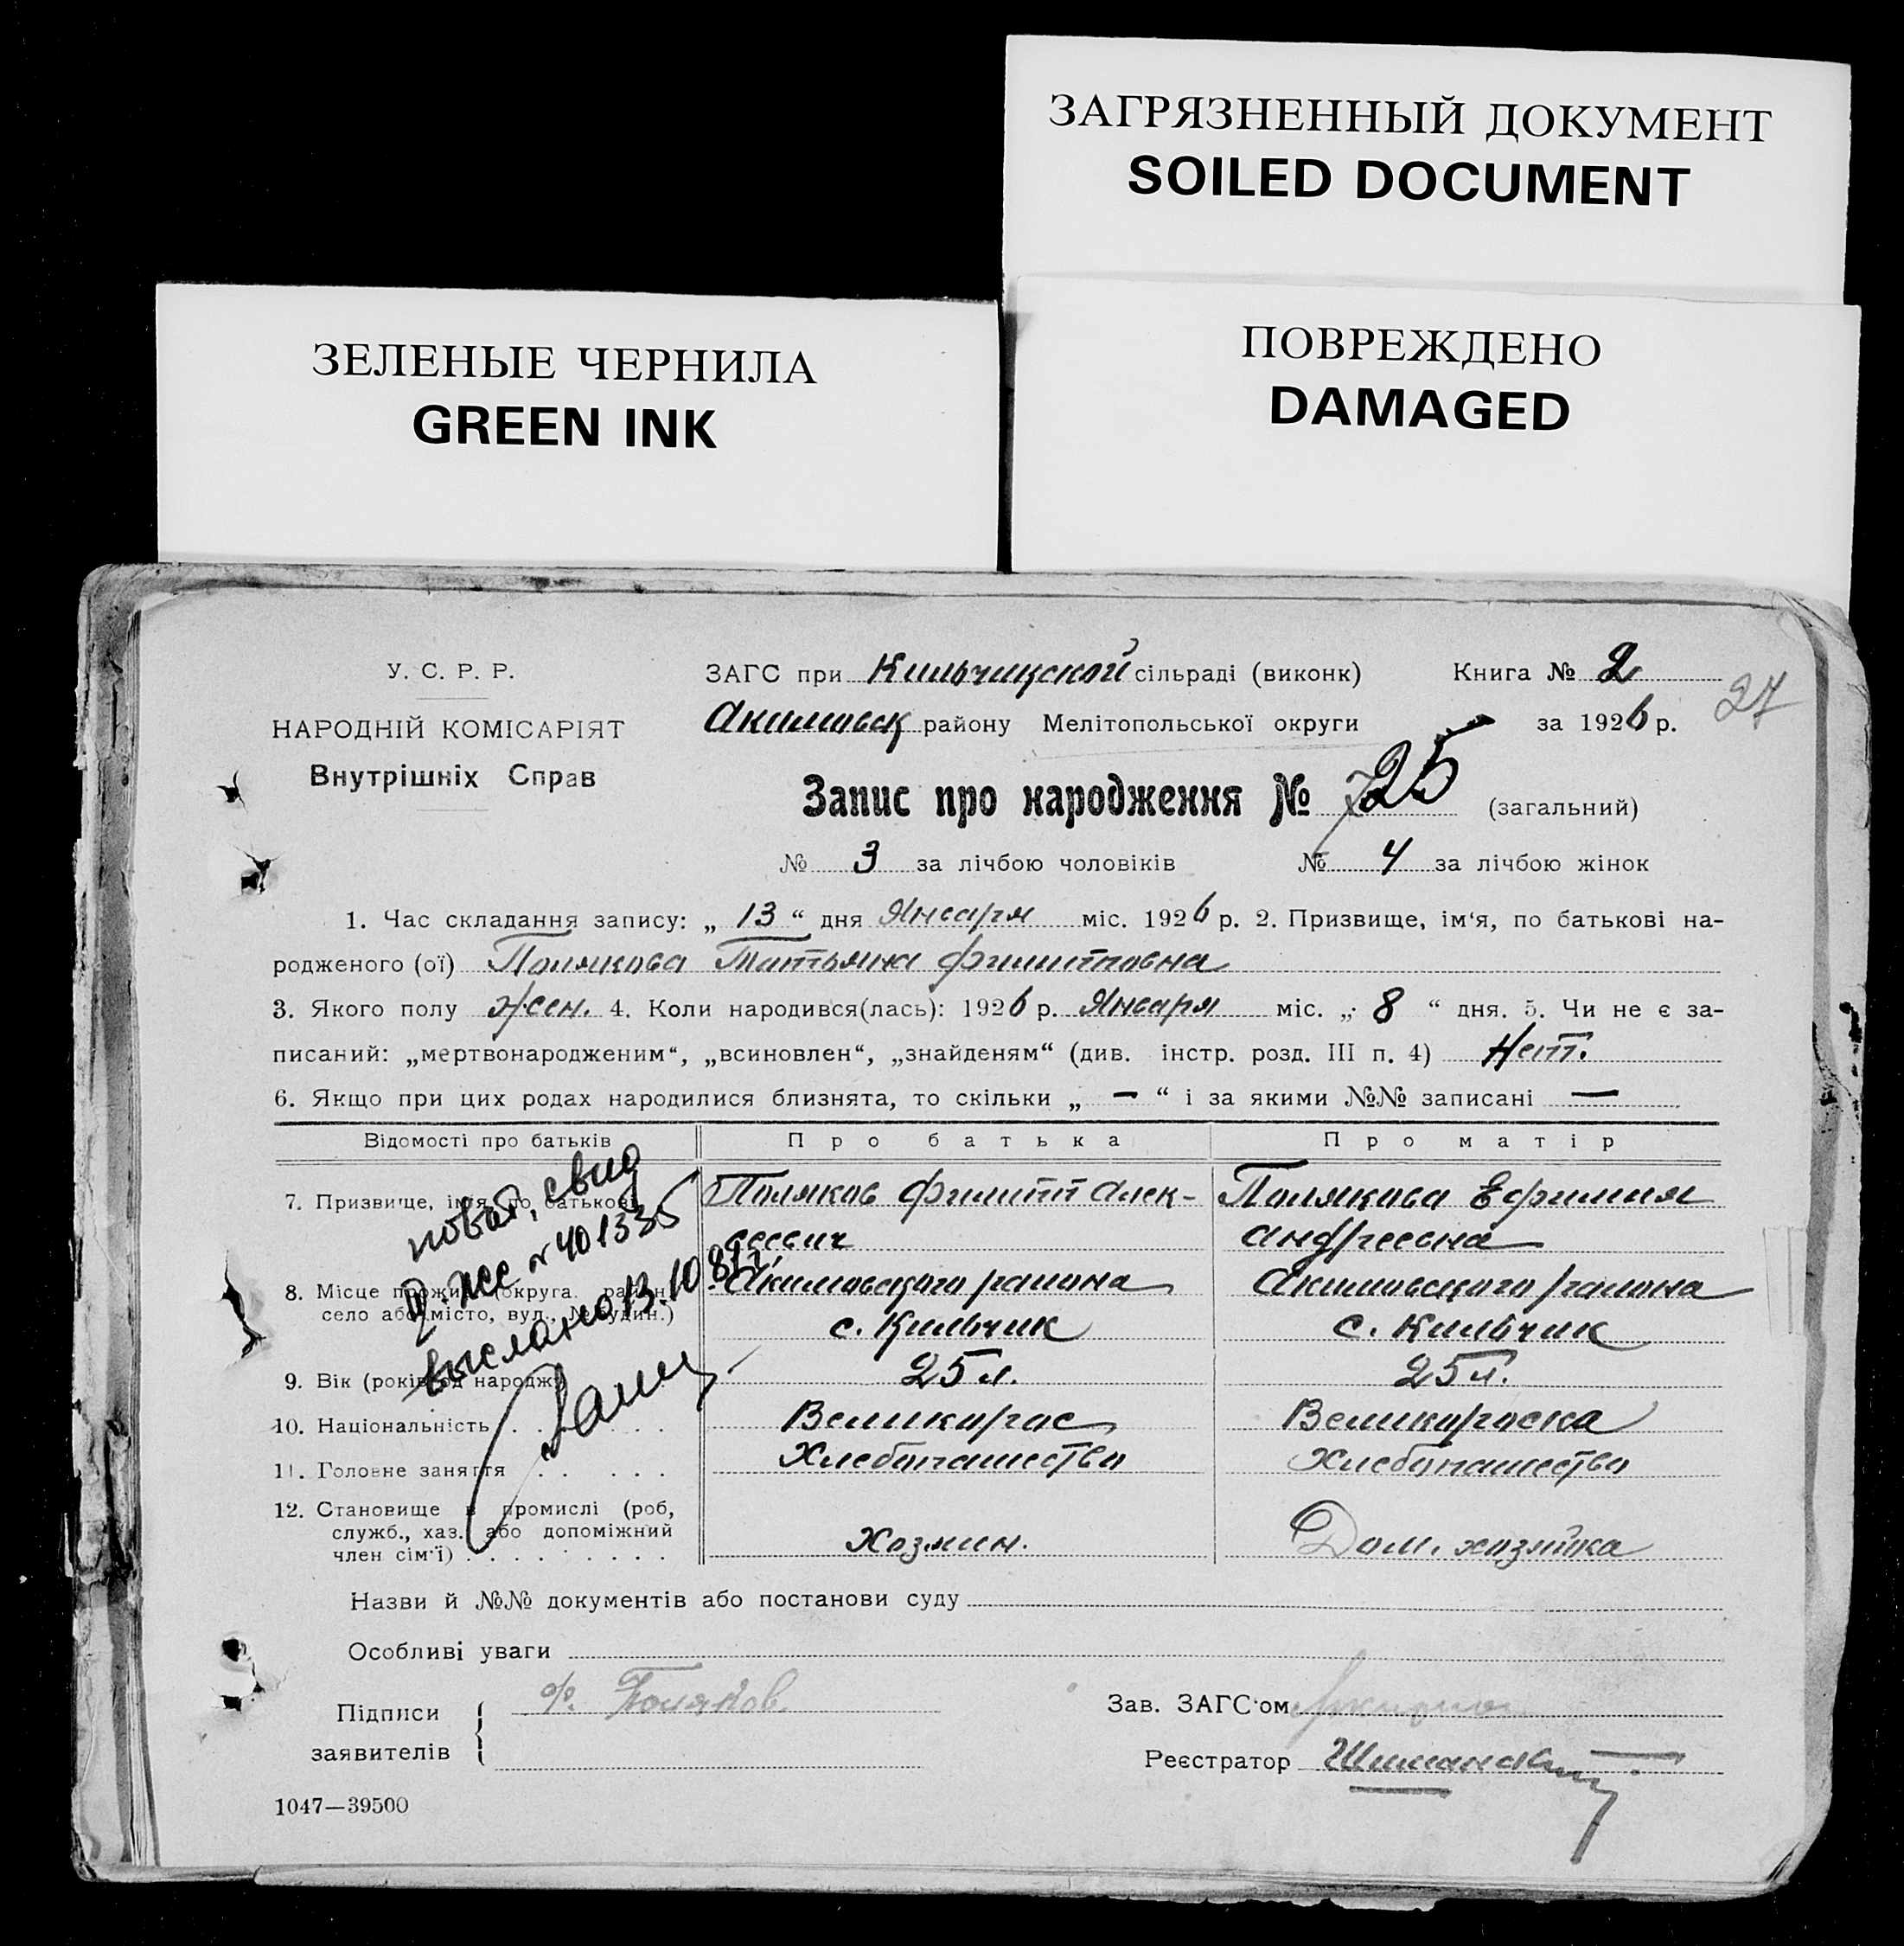 ЗАГРЯЗНЕННЫЙ ДОКУМЕНТ
SOILED DOCUMENT
ЗЕЛЕНЫЕ ЧЕРНИЛА
GREEN INK
ПОВРЕЖДЕНО
DAMAGED
У. С. Р. Р.
НАРОДНІЙ КОМІСАРІЯТ
Внутрішніх Справ
ЗАГС при Кильчицской сільраді (виконк) Книга № 2
27
Акимовск району Мелітопольської округи за 1926 р.
Запис про народження № 725 (загальний)
№ 3 за лічбою чоловіків № 4 за лічбою жінок
1. Час складання запису: „ 13 “ дня Января міс. 1926 р. 2. Призвище, ім‘я, по батькові на-
родженого (ої) Полякова Татьяна Филипповна
3. Якого полу жен. 4. Коли народився(лась): 1926 р. Января міс. „ 8 “ дня. 5. Чи не є за-
писаний: „мертвонародженим“, „всиновлен“, „знайденям“ (див. інстр. розд. III п. 4) Нет.
6. Якщо при цих родах народилися близнята, то скільки „ — “ і за якими №№ записані —
Відомості про батьків Про батька Про матір
7. Призвище, ім‘я, по батькові Поляков Филипп Алек- Полякова Ефимия
сеевич Андреевна
8. Місце прожив. (округа, район, Акимовского района Акимовского района
село або місто, вул., № будин.) с. Кильчик с. Кильчик
9. Вік (років од народж.) 25 л. 25 л.
10. Національність Великорос Великороска
11. Головне заняття Хлебопашество Хлебопашество
12. Становище в промислі (роб,
служб., хаз. або допоміжний
член сім‘ї) Хозяин. Дом. хозяйка
повт. свид
№ 401335
выслано 13.10.81г.
Назви й №№ документів або постанови суду
Особливі уваги
Підписи
заявителів
Ф. Поляков.
Зав. ЗАГС‘ом
Реєстратор Шиманский
1047—39500